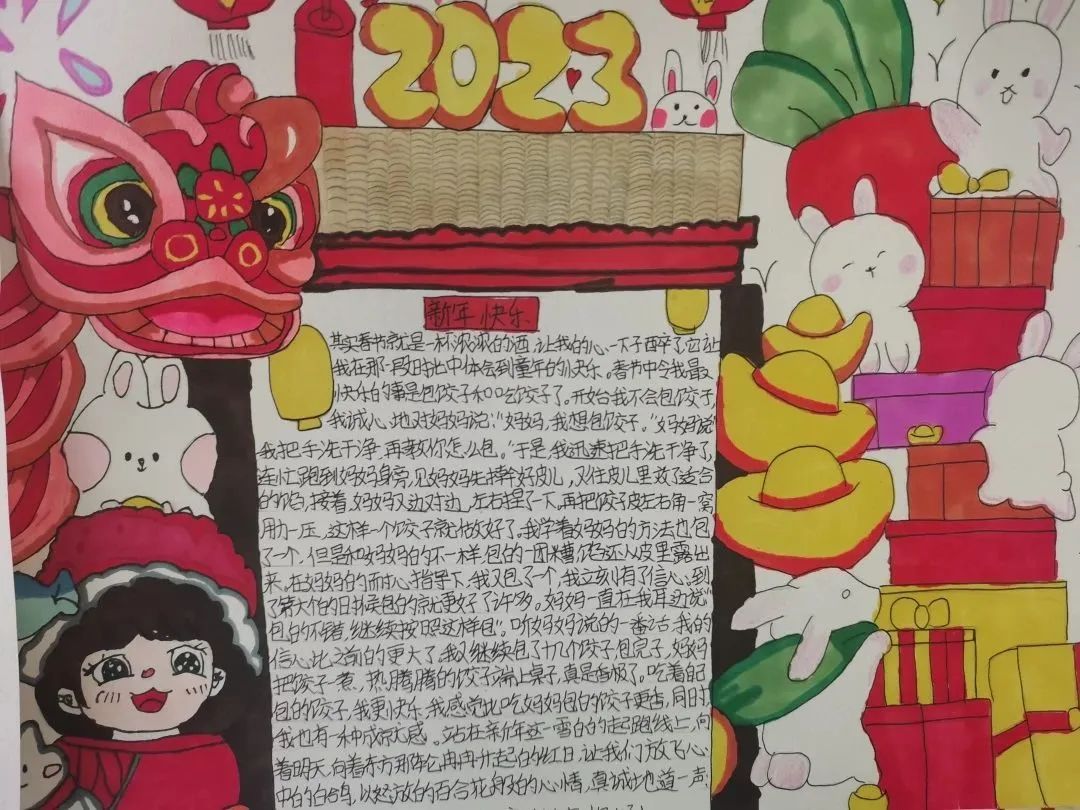 2023
新年快乐
其实春节就是一杯浓浓的酒,让我的心一下子醉了,它让
我在那一段时光中体会到童年的快乐。春节中令我最
快乐的事是包饺子和吃饺子了。开始我不会包饺子,
我诚心地对妈妈说:“妈妈,我想包饺子。”妈妈说
我把手洗干净,再教你怎么包。”于是,我迅速把手洗干净了,
连忙跑到妈妈身旁,见妈妈先擀好皮儿,又往皮儿里放了适合
的馅,接着,妈妈又边对边,左右捏了一下,再把饺子皮左右角一窝
用力一压,这样一个饺子就做好了,我学着妈妈的方法也包
了一个,但是和妈妈的不一样,包的一团糟,馅还从皮里露出
来,在妈妈的耐心指导下,我又包了一个,我立刻有了信心,到
了第六个的日扌包的就更好了许多。妈妈一直在我耳边说“
包的不错,继续按照这样包”。听妈妈说的一番话,我的
信心比之前的更大了,我又继续包了十几个饺子,包完了,妈妈
把饺子一煮,热腾腾的饺子端上桌子,真是香极了。吃着自己
包的饺子,我更快乐,我感觉比吃妈妈包的饺子更香,同时
我也有一种成就感。站在新年这一的起跑线上,向
着明天,向着东方那轮冉冉升起的红日,让我们放飞心
中的白鸽,以怒放的百合花般的心情,真诚地道一声,